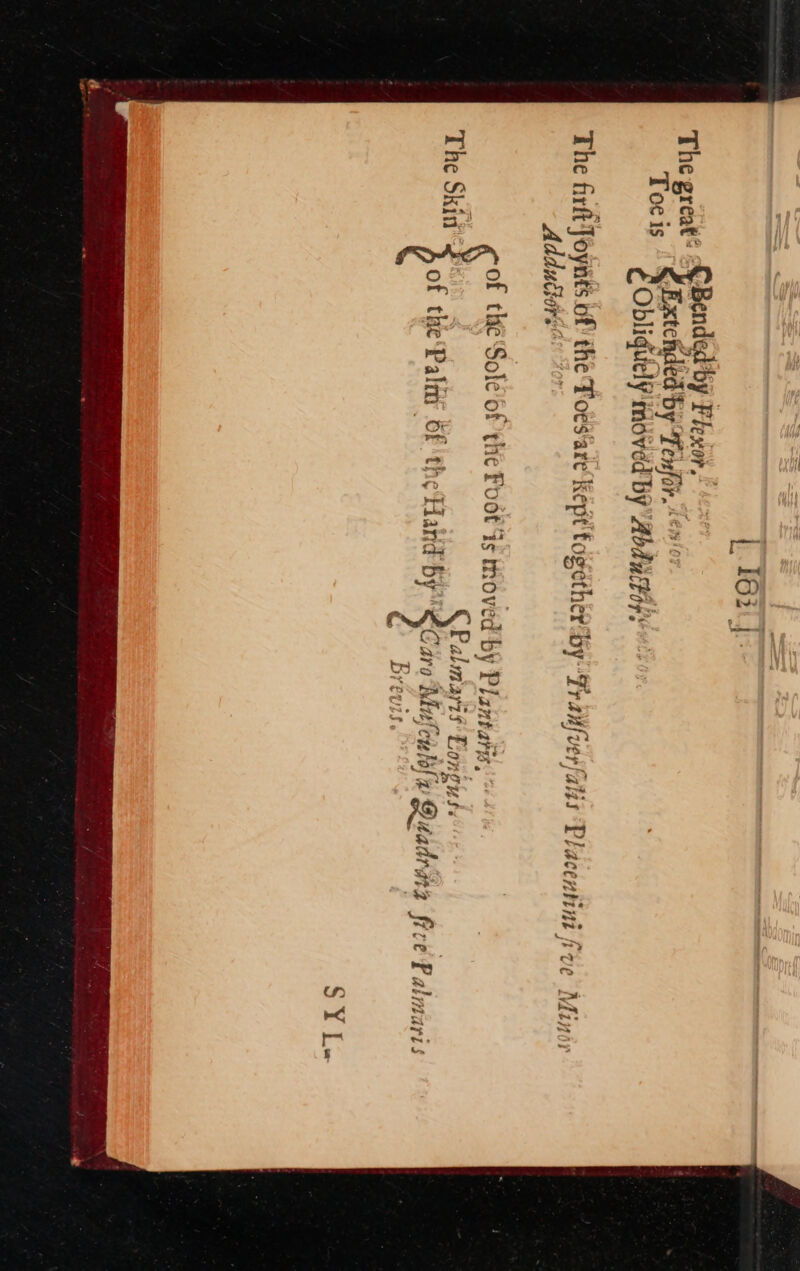 The great Bended by Flexor.
Toe is Extended by Tensor.
Obliquely moved by Abductor.
The first Joynts of the Toes are kept together by Transversalis Placentini sive Minor
Adductor.
The Skin of the Sole of the Foot is moved by Plantaris.
of the Palm of the Hand by Palmaris Longus.
Caro Musculosa Quadrata sive Palmaris
Brevis.
SYL-